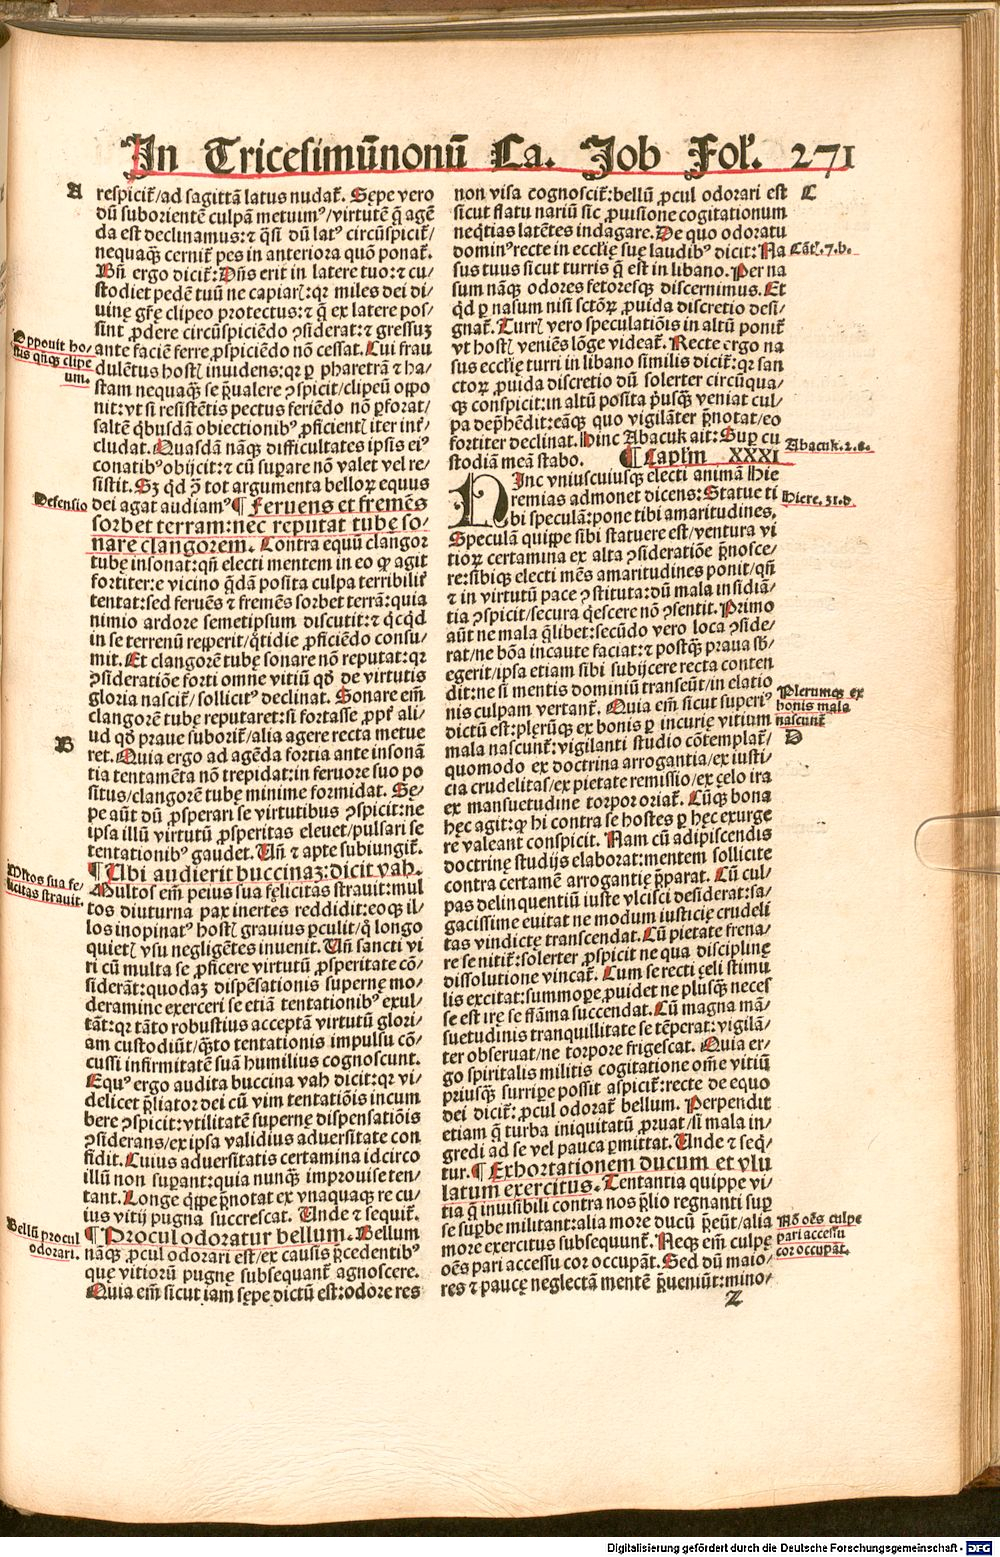 In Tricesimūnonū Ca. Job Fol'. 271
A
respicit᷑/ad sagittā latus nudat᷑. Sępe vero
dū suborientē culpā metuimꝰ/virtutē q̄ agē⸗
da est declinamus:⁊ q̄si dū latꝰ circūspicit᷑/
nequaqꝫ cernit᷑ pes in anteriora quō ponat᷑.
Bn̄ ergo dicit᷑:Dn̄s erit in latere tuo:⁊ cu/
stodiet pedē tuū ne capiaris:qꝛ miles dei di/
uinę grę̄ clipeo protectus:⁊ q̄ ex latere pos/
sint ꝓdere circūspiciēdo ꝯsiderat:⁊ gressuꝫ
ante faciē ferre ꝓspiciēdo nō cessat. Cui frau
dulētus hostis inuidens:qꝛ ꝑ pharetrā ⁊ ha/
stam nequaqꝫ se p̄ualere ꝯspicit/clipeū oppo
nit:vt si resistētis pectus feriēdo nō ꝑforat/
saltē q̄busdā obiectionibꝰ ꝓficientis iter int᷑/
cludat. Quasdā nāqꝫ difficultates ipsis eiꝰ
conatibꝰ obijcit:⁊ cū suꝑare nō valet vel re/
sistit. Sꝫ qd̄ ꝯ̄ tot argumenta belloꝝ equus
dei agat audiamꝰ ¶ Feruens et fremēs
sorbet terram:nec reputat tubę so/
nare clangorem. Contra equū clangor
tubę insonat:qn̄ electi mentem in eo qꝫ agit
fortiter:e vicino q̄dā posita culpa terribilit᷑
tentat:sed feruēs ⁊ fremēs sorbet terrā:quia
nimio ardore semetipsum discutit:⁊ qcq̄d
in se terrenū reꝑerit/q̄tidie ꝓficiēdo consu/
mit. Et clangorē tubę sonare nō reputat:qꝛ
ꝯsideratiōe forti omne vitiū qd̄ de virtutis
gloria nascit᷑/sollicitꝰ declinat. Sonare em̄
clangorē tubę reputaret:si fortasse ꝓpt᷑ ali/
ud qd̄ praue suborit᷑/alia agere recta metue
B
ret. Quia ergo ad agēda fortia ante insonā
tia tentamēta nō trepidat:in feruore suo po
situs/clangorē tubę minime formidat. Sę/
pe aūt dū ꝓsperari se virtutibus ꝯspicit:ne
ipsa illū virtutū ꝓsperitas eleuet/pulsari se
tentationibꝰ gaudet. Un̄ ⁊ apte subiungit᷑.
¶ Ubi audierit buccinaꝫ:dicit vah.
Multos em̄ peius sua fęlicitas strauit:mul
tos diuturna pax inertes reddidit:eoqꝫ il/
los inopinatꝰ hostis grauius ꝑculit/q̄ longo
quietis vsu negligētes inuenit. Un̄ sancti vi
ri cū multa se ꝓficere virtutū ꝓsperitate cō/
siderāt:quodaꝫ dispēsationis supernę mo/
deramine exerceri se etiā tentationibꝰ exul/
tāt:qꝛ tāto robustius acceptā virtutū glori/
am custodiūt/q̄to tentationis impulsu cō/
cussi infirmitatē suā humilius cognoscunt.
Equꝰ ergo audita buccina vah dicit:qꝛ vi/
delicet p̄liator dei cū vim tentatiōis incum
bere ꝯspicit:vtilitatē supernę dispensatiōis
ꝯsiderans/ex ipsa validius aduersitate con
fidit. Cuius aduersitatis certamina idcirco
illū non suꝑant:quia nunqꝫ improuise ten/
tant. Longe q̄ppe p̄notat ex vnaquaqꝫ re cu/
ius vitij pugna succrescat. Unde ⁊ sequit᷑.
¶ Procul odoratur bellum. Bellum
nāqꝫ ꝓcul odorari est/ex causis p̄cedentibꝰ
quę vitiorū pugnę subsequant᷑ agnoscere.
Quia em̄ sicut iam sępe dictū est:odore res
Oppouit ho/
stis qn̄qꝫ clipe
um.
Defensio
Mltos sua fe/
licitas strauit.
Bellū procul
odorari.
non visa cognoscit᷑:bellū ꝓcul odorari est
C
sicut flatu nariū sic ꝓuisione cogitationum
neq̄tias latētes indagare. De quo odoratu
dominꝰ recte in ecclię suę laudibꝰ dicit: Na
Cāt. 7.b.
sus tuus sicut turris q̄ est in libano. Per na
sum nāqꝫ odores fetoresqꝫ discernimus. Et
qd̄ ꝑ nasum nisi sctōꝝ ꝓuida discretio desi/
gnat᷑. Turris vero speculatiōis in altū ponit᷑
vt hostis veniēs lōge videat᷑. Recte ergo na
sus ecclię turri in libano similis dicit᷑:qꝛ san
ctoꝝ ꝓuida discretio dū solerter circūqua/
qꝫ conspicit:in altū posita p̄usqꝫ veniat cul/
pa dep̄hēdit:eāqꝫ quo vigilāter p̄notat/eo
fortiter declinat. Hinc Abacuk ait:Suꝑ cu
Abacuk. 2.a.
stodiā meā stabo. ¶ Caplm̄ XXXI
HInc vniuscuiusqꝫ electi animā Hie
remias admonet dicens:Statue ti
Hiere. 31.d.
bi speculā:pone tibi amaritudines.
Speculā quippe sibi statuere est/ventura vi
tioꝝ certamina ex alta ꝯsideratiōe p̄nosce/
re:sibiqꝫ electi mēs amaritudines ponit/qn̄
⁊ in virtutū pace ꝯstituta:dū mala insidiā/
tia ꝯspicit/secura q̄escere nō ꝯsentit. Primo
aūt ne mala q̄libet:secūdo vero loca ꝯside/
rat/ne bōa incaute faciat:⁊ postqꝫ praua sb̄/
egerit/ipsa etiam sibi subijcere recta conten
dit:ne si mentis dominiū transeūt/in elatio
nis culpam vertant᷑. Quia em̄ sicut superiꝰ
dictū est:plęrūqꝫ ex bonis ꝑ incurię vitium
Plerumqꝫ ex
bonis mala
nascunt᷑
D
mala nascunt᷑:vigilanti studio cōtemplat᷑/
quomodo ex doctrina arrogantia/ex iusti/
cia crudelitas/ex pietate remissio/ex çelo ira
ex mansuetudine torpor oriat᷑. Cūqꝫ bona
hęc agit:qꝫ hi contra se hostes ꝑ hęc exurge
re valeant conspicit. Nam cū adipiscendis
doctrinę studijs elaborat:mentem sollicite
contra certamē arrogantię p̄parat. Cū cul/
pas delinquentiū iuste vlcisci desiderat:sa/
gacissime euitat ne modum iusticię crudeli
tas vindictę transcendat. Cū pietate frena/
re se nitit᷑:solerter ꝓspicit ne qua disciplinę
dissolutione vincat᷑. Cum se recti çeli stimu
lis excitat:summope ꝓuidet ne plusqꝫ neces
se est irę se flāma succendat. Cū magna mā/
suetudinis tranquillitate se tēperat:vigilā/
ter obseruat/ne torpore frigescat. Quia er/
go spiritalis militis cogitatione om̄e vitiū
priusqꝫ surripe possit aspicit᷑:recte de equo
dei dicit᷑:ꝓcul odorat᷑ bellum. Perpendit
etiam q̄ turba iniquitatū ꝓruat/si mala in/
gredi ad se vel pauca ꝑmittat. Unde ⁊ seq̄/
tur. ¶ Exhortationem ducum et vlu
latum exercitus. Tentantia quippe vi/
tia q̄ inuisibili contra nos p̄lio regnanti suꝑ
se suꝑbe militant:alia more ducū p̄eūt/alia
more exercitus subsequunt᷑. Neqꝫ em̄ culpę
oēs pari accessu cor occupāt. Sed dū maio/
res ⁊ paucę neglectā mentē p̄ueniūt:mino/
Nō oēs culpe
pari accessu
cor occupāt.
Z
Digitalisierung gefördert durch die Deutsche Forschungsgemeinschaft - DFG